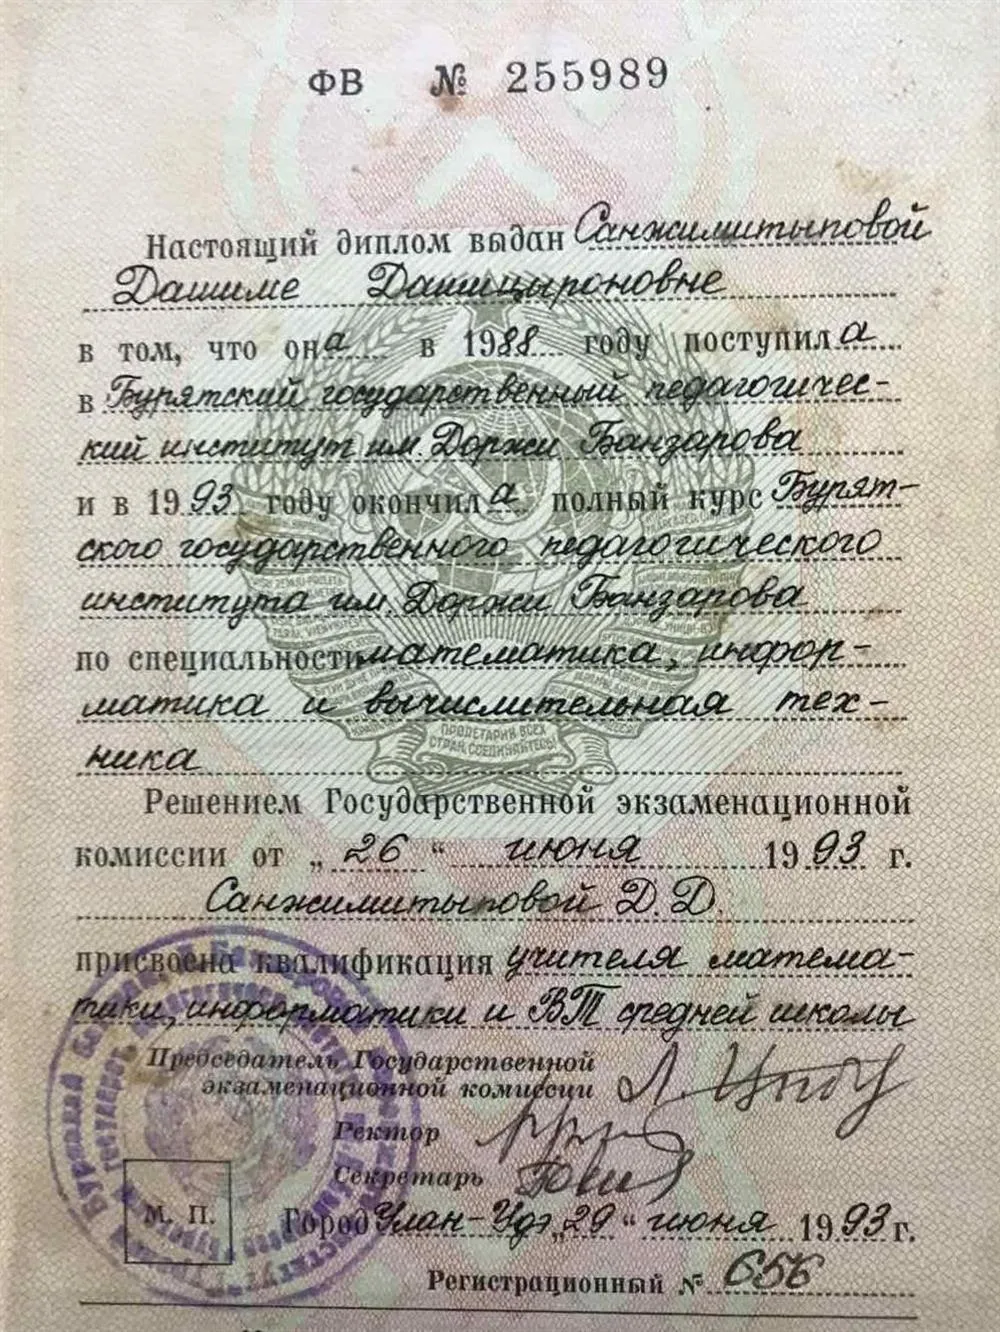 ФВ № 255989
Настоящий диплом выдан Санжимитыповой
Дашиме Дашицыроновне
в том, что она в 1988 году поступила
в Бурятский государственный педагогичес-
кий институт им. Доржи Банзарова
и в 1993 году окончила полный курс Бурят-
ского государственного педагогического
института им. Доржи Банзарова
по специальности математика, инфор-
матика и вычислительная тех-
ника
ПРОЛЕТАРИИ ВСЕХ
СТРАН, СОЕДИНЯЙТЕСЬ!
Решением Государственной экзаменационной
комиссии от „26“ июня 1993 г.
Санжимитыповой Д. Д.
присвоена квалификация учителя матема-
тики, информатики и ВТ средней школы
Председатель Государственной
экзаменационной комиссии
Ректор
Секретарь
М. П.
Город Улан-Удэ „29“ июня 1993 г.
Регистрационный № 656